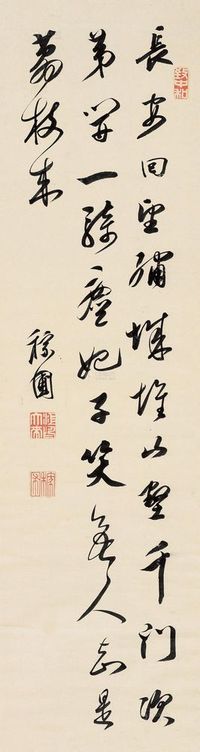 長安回望繡城堆山千門次
第開一騎塵妃子笑無人知是
荔枝來
稼圃